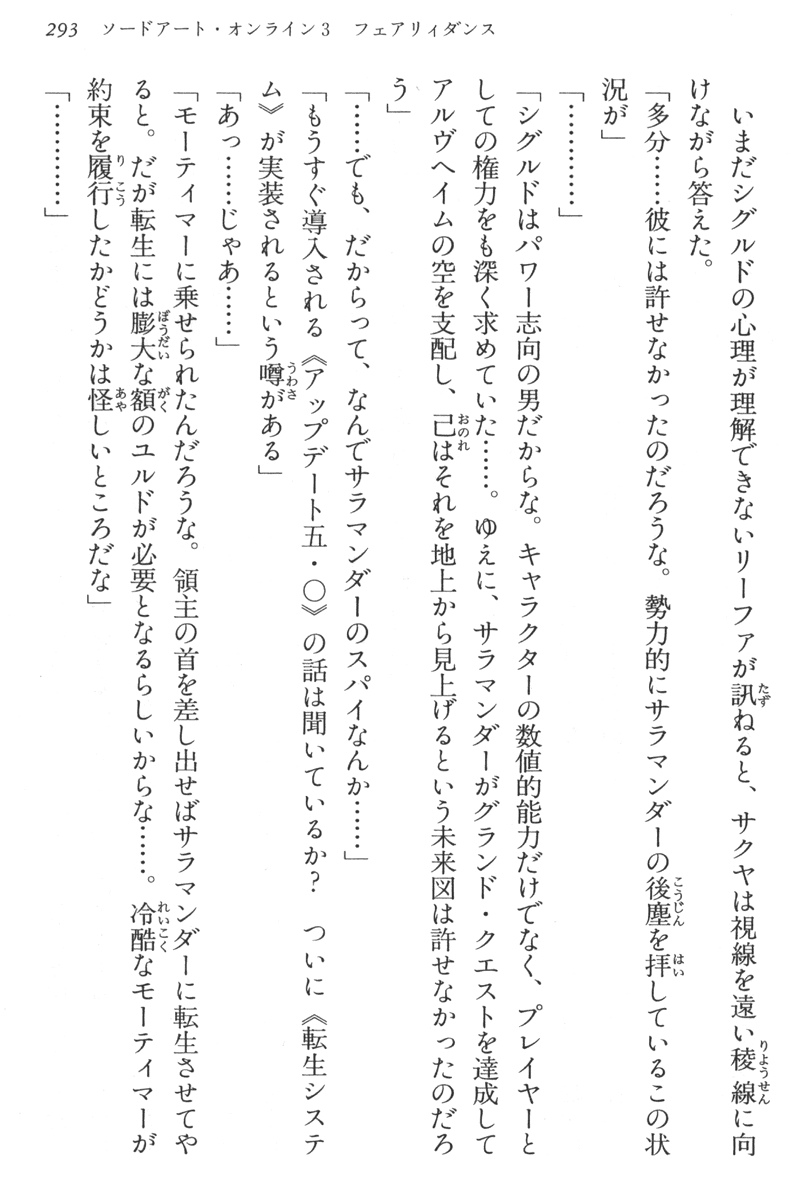 293 ソードアート・オンライン3 フェアリィダンス
　いまだシグルドの心理が理解できないリーファが訊ねると、サクヤは視線を遠い稜線に向
けながら答えた。
「多分……彼には許せなかったのだろうな。勢力的にサラマンダーの後塵を拝しているこの状
況が」
「…………」
「シグルドはパワー志向の男だからな。キャラクターの数値的能力だけでなく、プレイヤーと
しての権力をも深く求めていた……。ゆえに、サラマンダーがグランド・クエストを達成して
アルヴヘイムの空を支配し、己はそれを地上から見上げるという未来図は許せなかったのだろ
う」
「……でも、だからって、なんでサラマンダーのスパイなんか……」
「もうすぐ導入される《アップデート五・〇》の話は聞いているか？　ついに《転生システ
ム》が実装されるという噂がある」
「あっ……じゃあ……」
「モーティマーに乗せられたんだろうな。領主の首を差し出せばサラマンダーに転生させてや
ると。だが転生には膨大な額のユルドが必要となるらしいからな……。冷酷なモーティマーが
約束を履行したかどうかは怪しいところだな」
「…………」